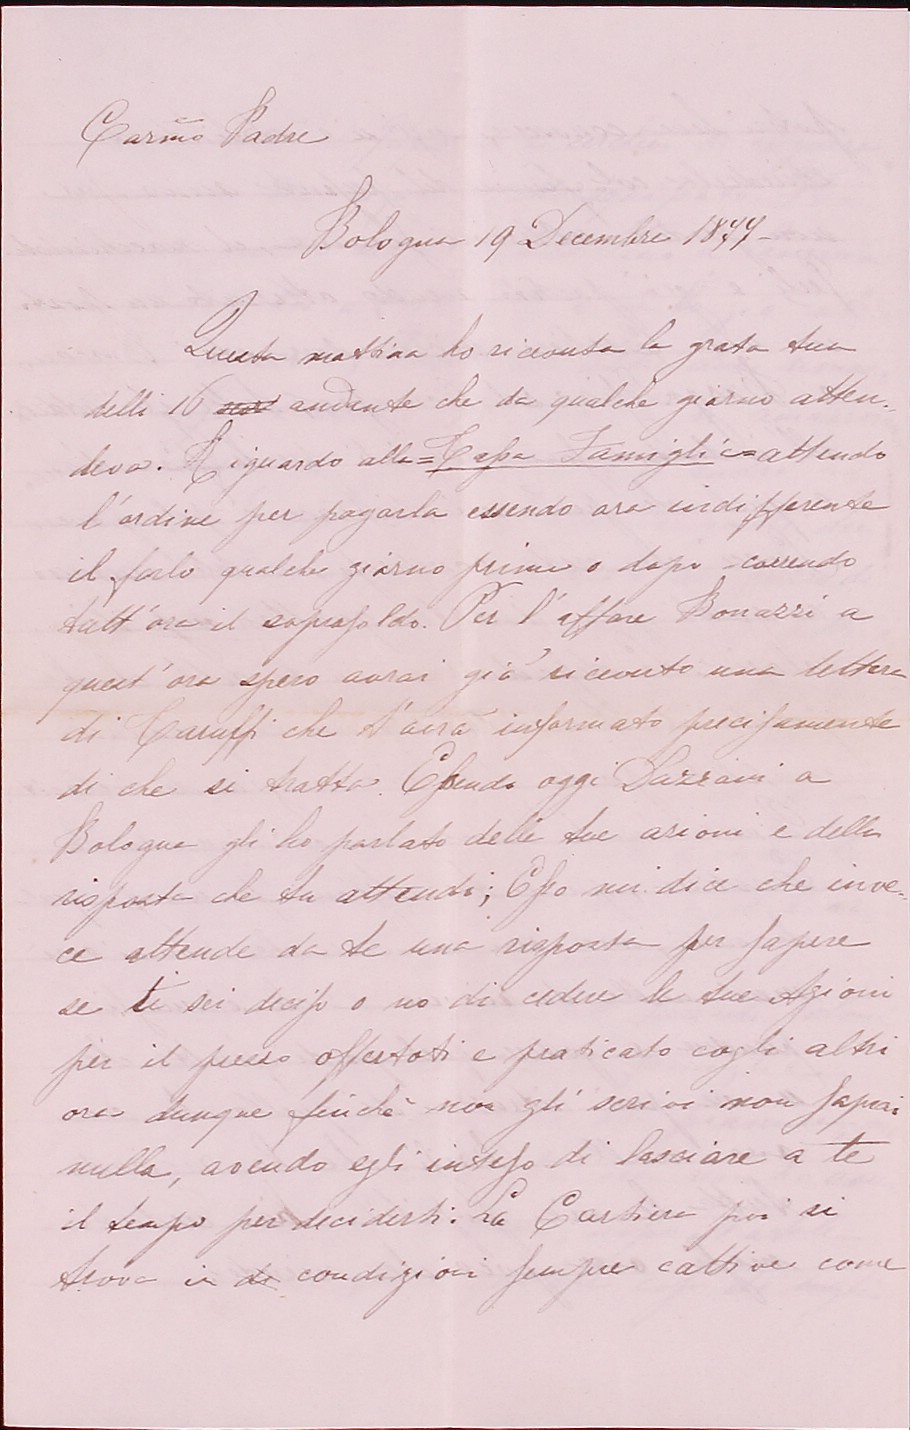 Carmo Padre
Bologna 19 Decembre 1877-
Questa mattina ho ricevuta la grata tua
delli 16 andante che da qualche giorno atten-
deva. Riguardo alla = Tassa Famiglia = attendo
l'ordine per pagarla essendo ora indifferente
il farlo qualche giorno prima o dopo correndo
tutt'ora il soprasoldo. Per l'affare Bonazzi a
quest'ora spero avrai già ricevuto una lettera
di Taruffi che t'avrà informato precisamente
di che si tratta. Essendo oggi a
Bologna gli ho parlato delle tue azioni e della
risposta che tu attendi; Esso mi dice che inve-
ce attende da te una risposta per sapere
se ti sei deciso o no di cedere le tue Azioni
per il prezzo offertoti e praticato cogli altri
ora dunque finchè non gli scrivi non saprai
nulla, avendo egli inteso di lasciare a te
il tempo per deciderti. La Cartiera poi si
trova in de condizioni sempre cattive come